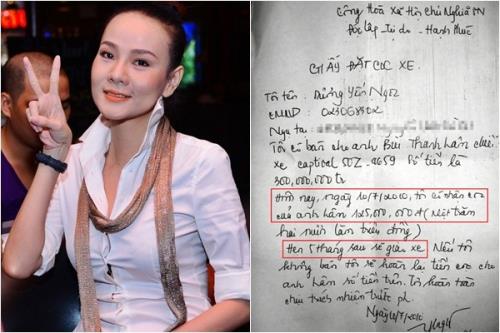 Cộng Hòa Xã Hội Chủ Nghĩa VN
Độc Lập - Tự do - Hạnh Phúc
GIẤY ĐẶT CỌC XE
Tôi tên : Dương Yến Ngọc
CMND :
Ngụ tại :
Tôi có bán cho anh Bùi Thanh Hân chiếc
xe captival 50Z. 4659 Số tiền là
300,000,000 tr
Hôm nay, ngày 10/7/2010, tôi có nhận cọc
của anh hân 125,000,000 đ (Một trăm
hai mươi lăm triệu đồng)
Hẹn 1 tháng sau sẽ giao xe. Nếu tôi
không bán tôi sẽ hoàn lại tiền cọc cho
anh hân số tiền trên. Tôi hoàn toàn
chịu trách nhiệm trước pl.
Ngày 10/7/2010